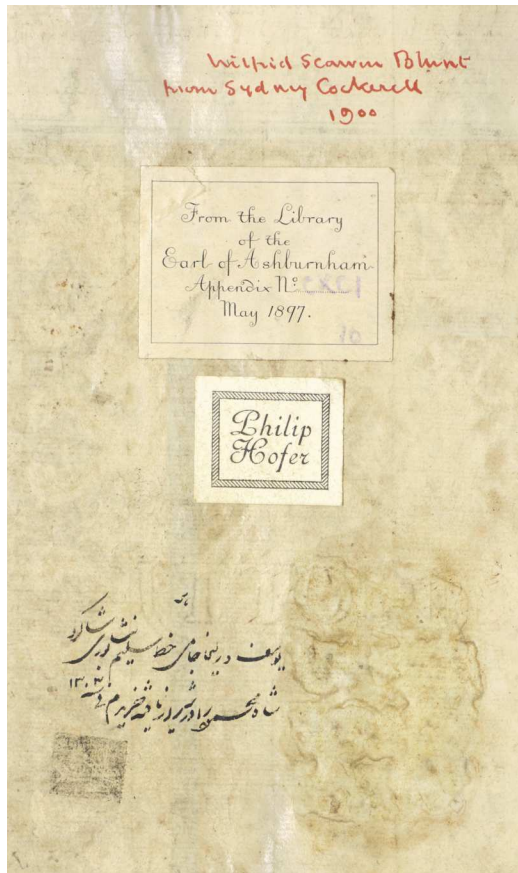 Wilfrid Scawen Blunt
from Sydney Cockerell
1900
From the Library
of the
Earl of Ashburnham
Appendix Nº
May 1897.
Philip
Hofer
هو
یوسف و زلیخا جامی خط سلیم نیشابوری شاگرد
شاه محمود در
۱۳۰۳